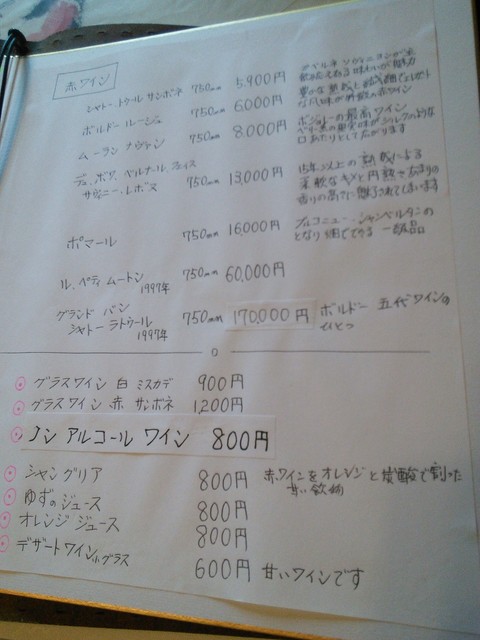 赤ワイン
シャトー トゥール サンボネ 750mm 5,900円
ボルドー ルージュ 750mm 6,000円
ムーラン ナヴァン 750mm 8,000円
ボジョレーの最高ワイン
口あたりとして広がります
デュ、ボワ、ベルナール,フェイス
サヴニー、レ ボヌ 750mm 13,000円
15年以上の熟成による
柔軟なキメと円熟で
香りの高さに魅了されてしまいます
ポマール 750mm 16,000円
ブルゴニュー、シャンベルタンの
となり畑でできる 一級品
ル、ペティ ムートン 750mm 60,000円
1997年
グランド バン
シャトー ラトゥール 750mm 170,000円
1997年
ボルドー 五代ワインの
ひとつ
グラスワイン 白 ミスカデ 900円
グラスワイン 赤 サンボネ 1,200円
ノン アルコール ワイン 800円
シャングリア 800円 赤ワインをオレンジと炭酸で割った
甘い飲物
ゆずのジュース 800円
オレンジ ジュース 800円
デザートワイン小グラス 600円 甘いワインです